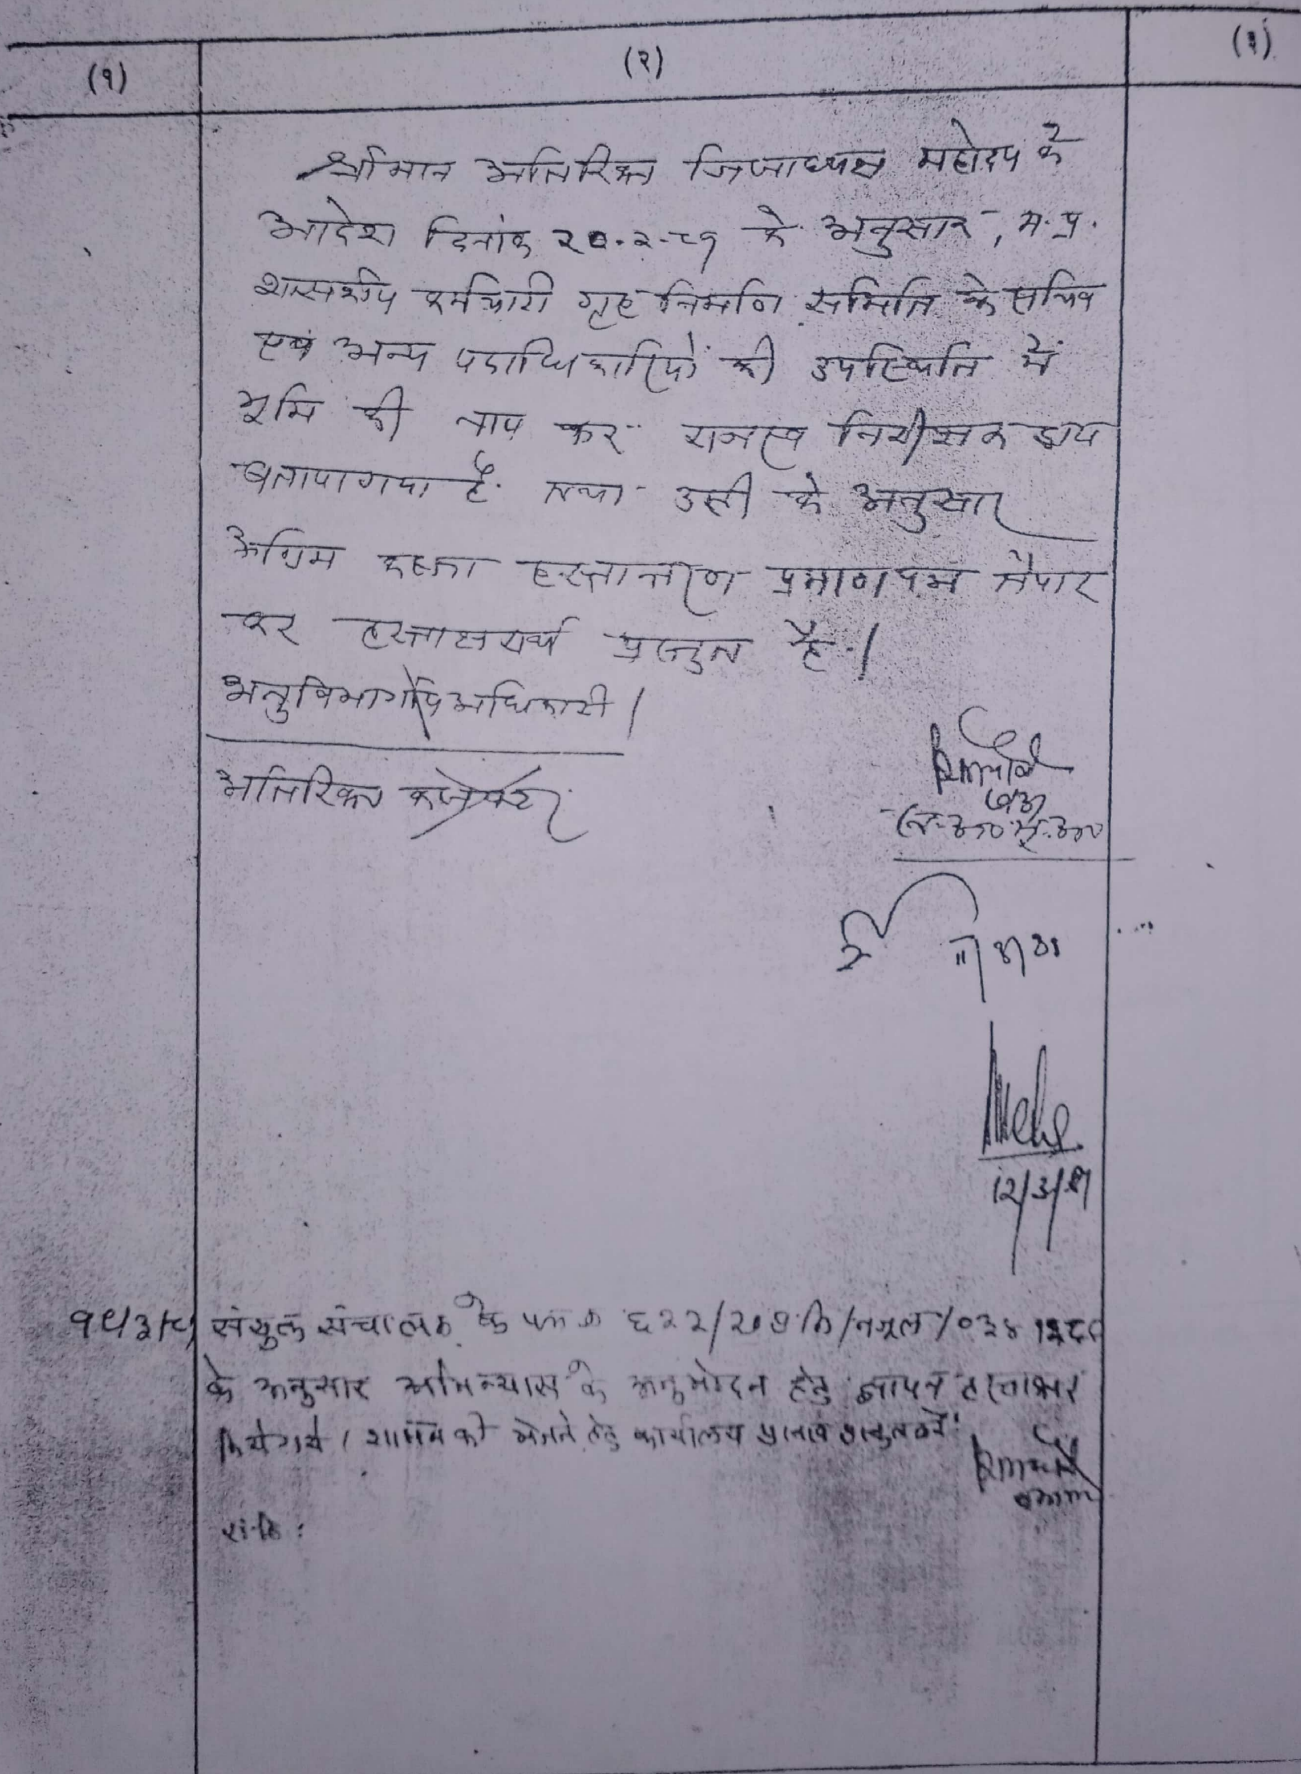 (१) (२) (३)
श्रीमान अतिरिक्त जिलाध्यक्ष महोदय के
आदेश दिनांक २०.२.८१ के अनुसार, म.प्र.
शासकीय कर्मचारी गृह निर्माण समिति के सचिव
एवं अन्य पदाधिकारियों की उपस्थिति में
भूमि की नाप कर राजस्व निरीक्षक द्वारा
बताया गया है. तथा उसी के अनुसार
अग्रिम कब्जा हस्तान्तरण प्रमाण पत्र तैयार
कर हस्ताक्षरार्थ प्रस्तुत है.।
अनुविभागीय अधिकारी।
अतिरिक्त कलेक्टर
12/3/81
संयुक्त संचालक के पत्र क्र ६२२/ /नजूल/
के अनुसार अभिन्यास के अनुमोदन हेतु ज्ञापन हस्ताक्षर
किये गये। शासन को भेजने हेतु कार्यालय प्रस्ताव प्रस्तुत करें।